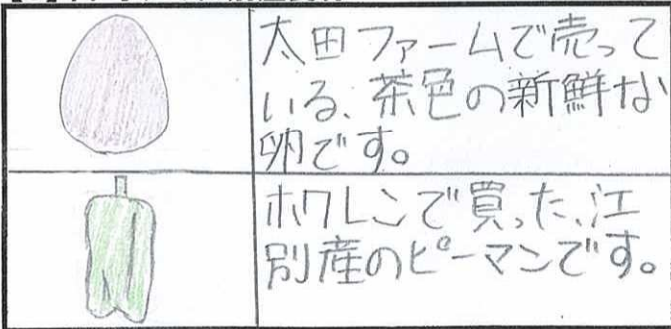 太田ファームで売って
いる、茶色の新鮮な
卵です。
ホクレンで買った、江
別産のピーマンです。